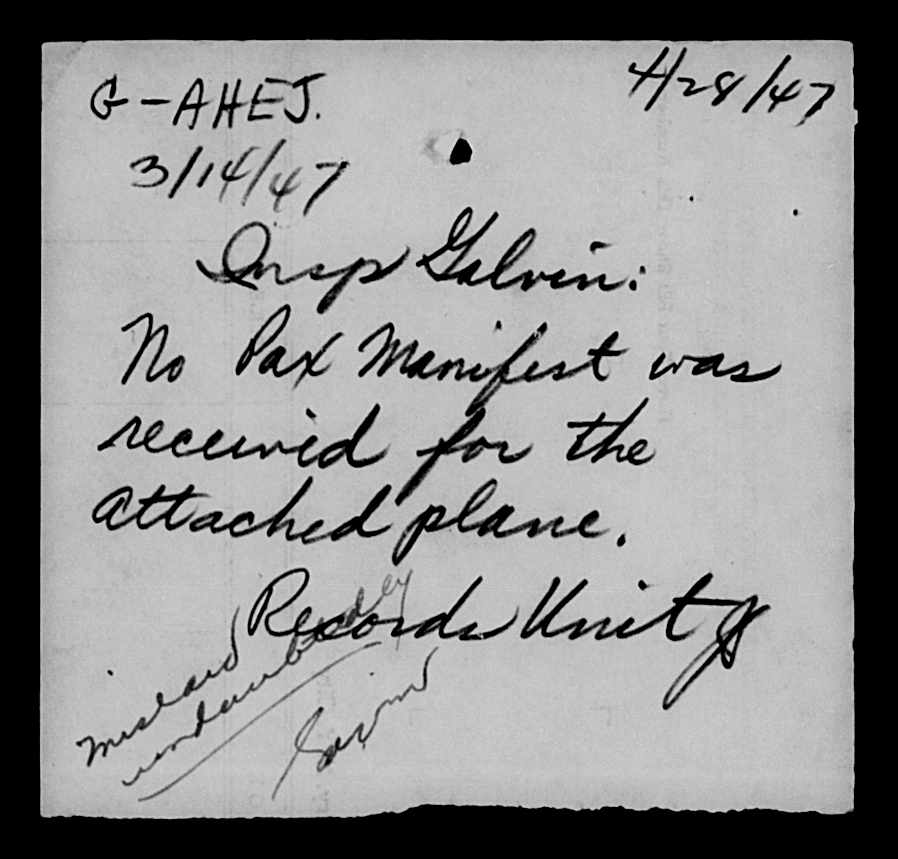 G-AHEJ.
4/28/47
3/14/47
Insp Galvin:
No Pax Manifest was
received for the
attached plane.
Records Unit
Mislaid
undoubtedly